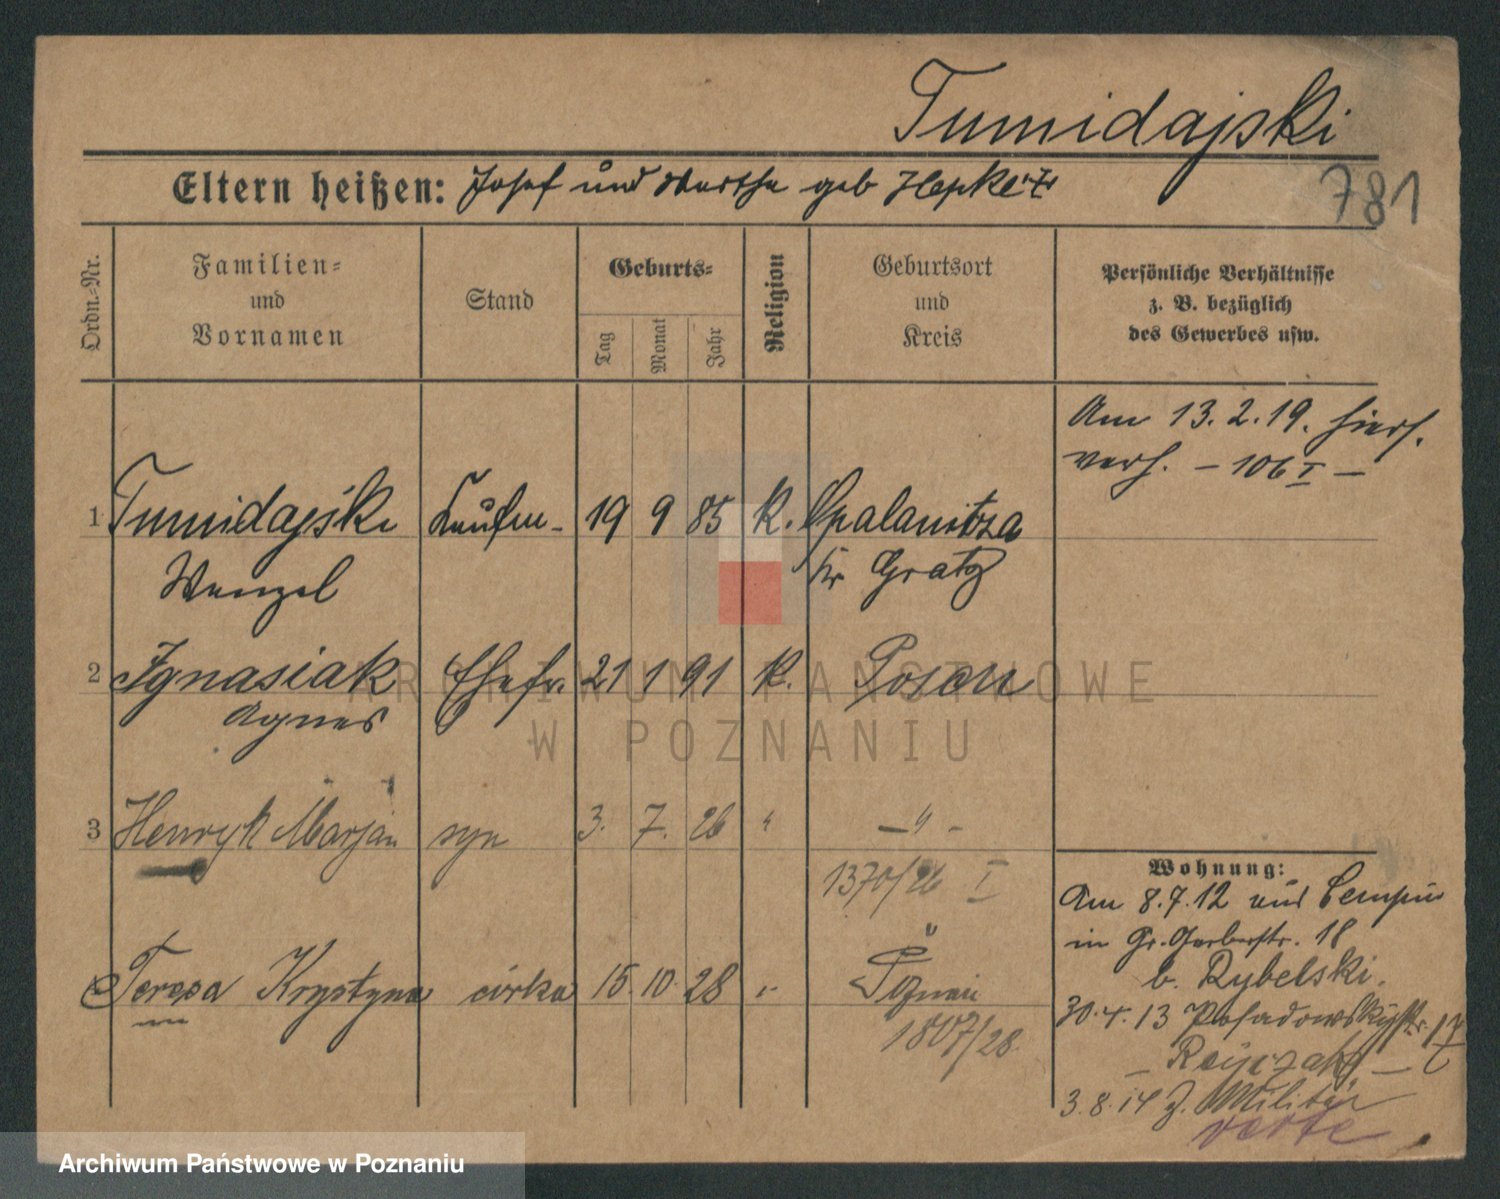 Tumidajski
781
Eltern heißen: Josef und Martha geb
Ordn.-Nr.
Familien=
und
Vornamen
Stand
Geburts=
Tag
Monat
Jahr
Religion
Geburtsort
und
Kreis
Persönliche Verhältnisse
z. B. bezüglich
des Gewerbes usw.
Am 13.2.19. hiers.
verh. – 106 I –
1 Tumidajski Kaufm. 19 9 85 k. Opalenitza
Wenzel Kr Gratz
2 Ignasiak Ehefr. 21 1 91 k. Posen
Agnes
3 Henryk Marjan syn 3. 7. 26 " – " –
1370/26 I
Teresa Krystyna córka 15 10. 28 " Poznań
1807/28.
Wohnung:
Am 8.7.12 aus
in Gr. Gerberstr. 18
b. Rybelski.
30.4.13 Posadowskystr. 17
– Ratajczak –
3.8.14 z. Militär
verte
ARCHIWUM PAŃSTWOWE
W POZNANIU
Archiwum Państwowe w Poznaniu